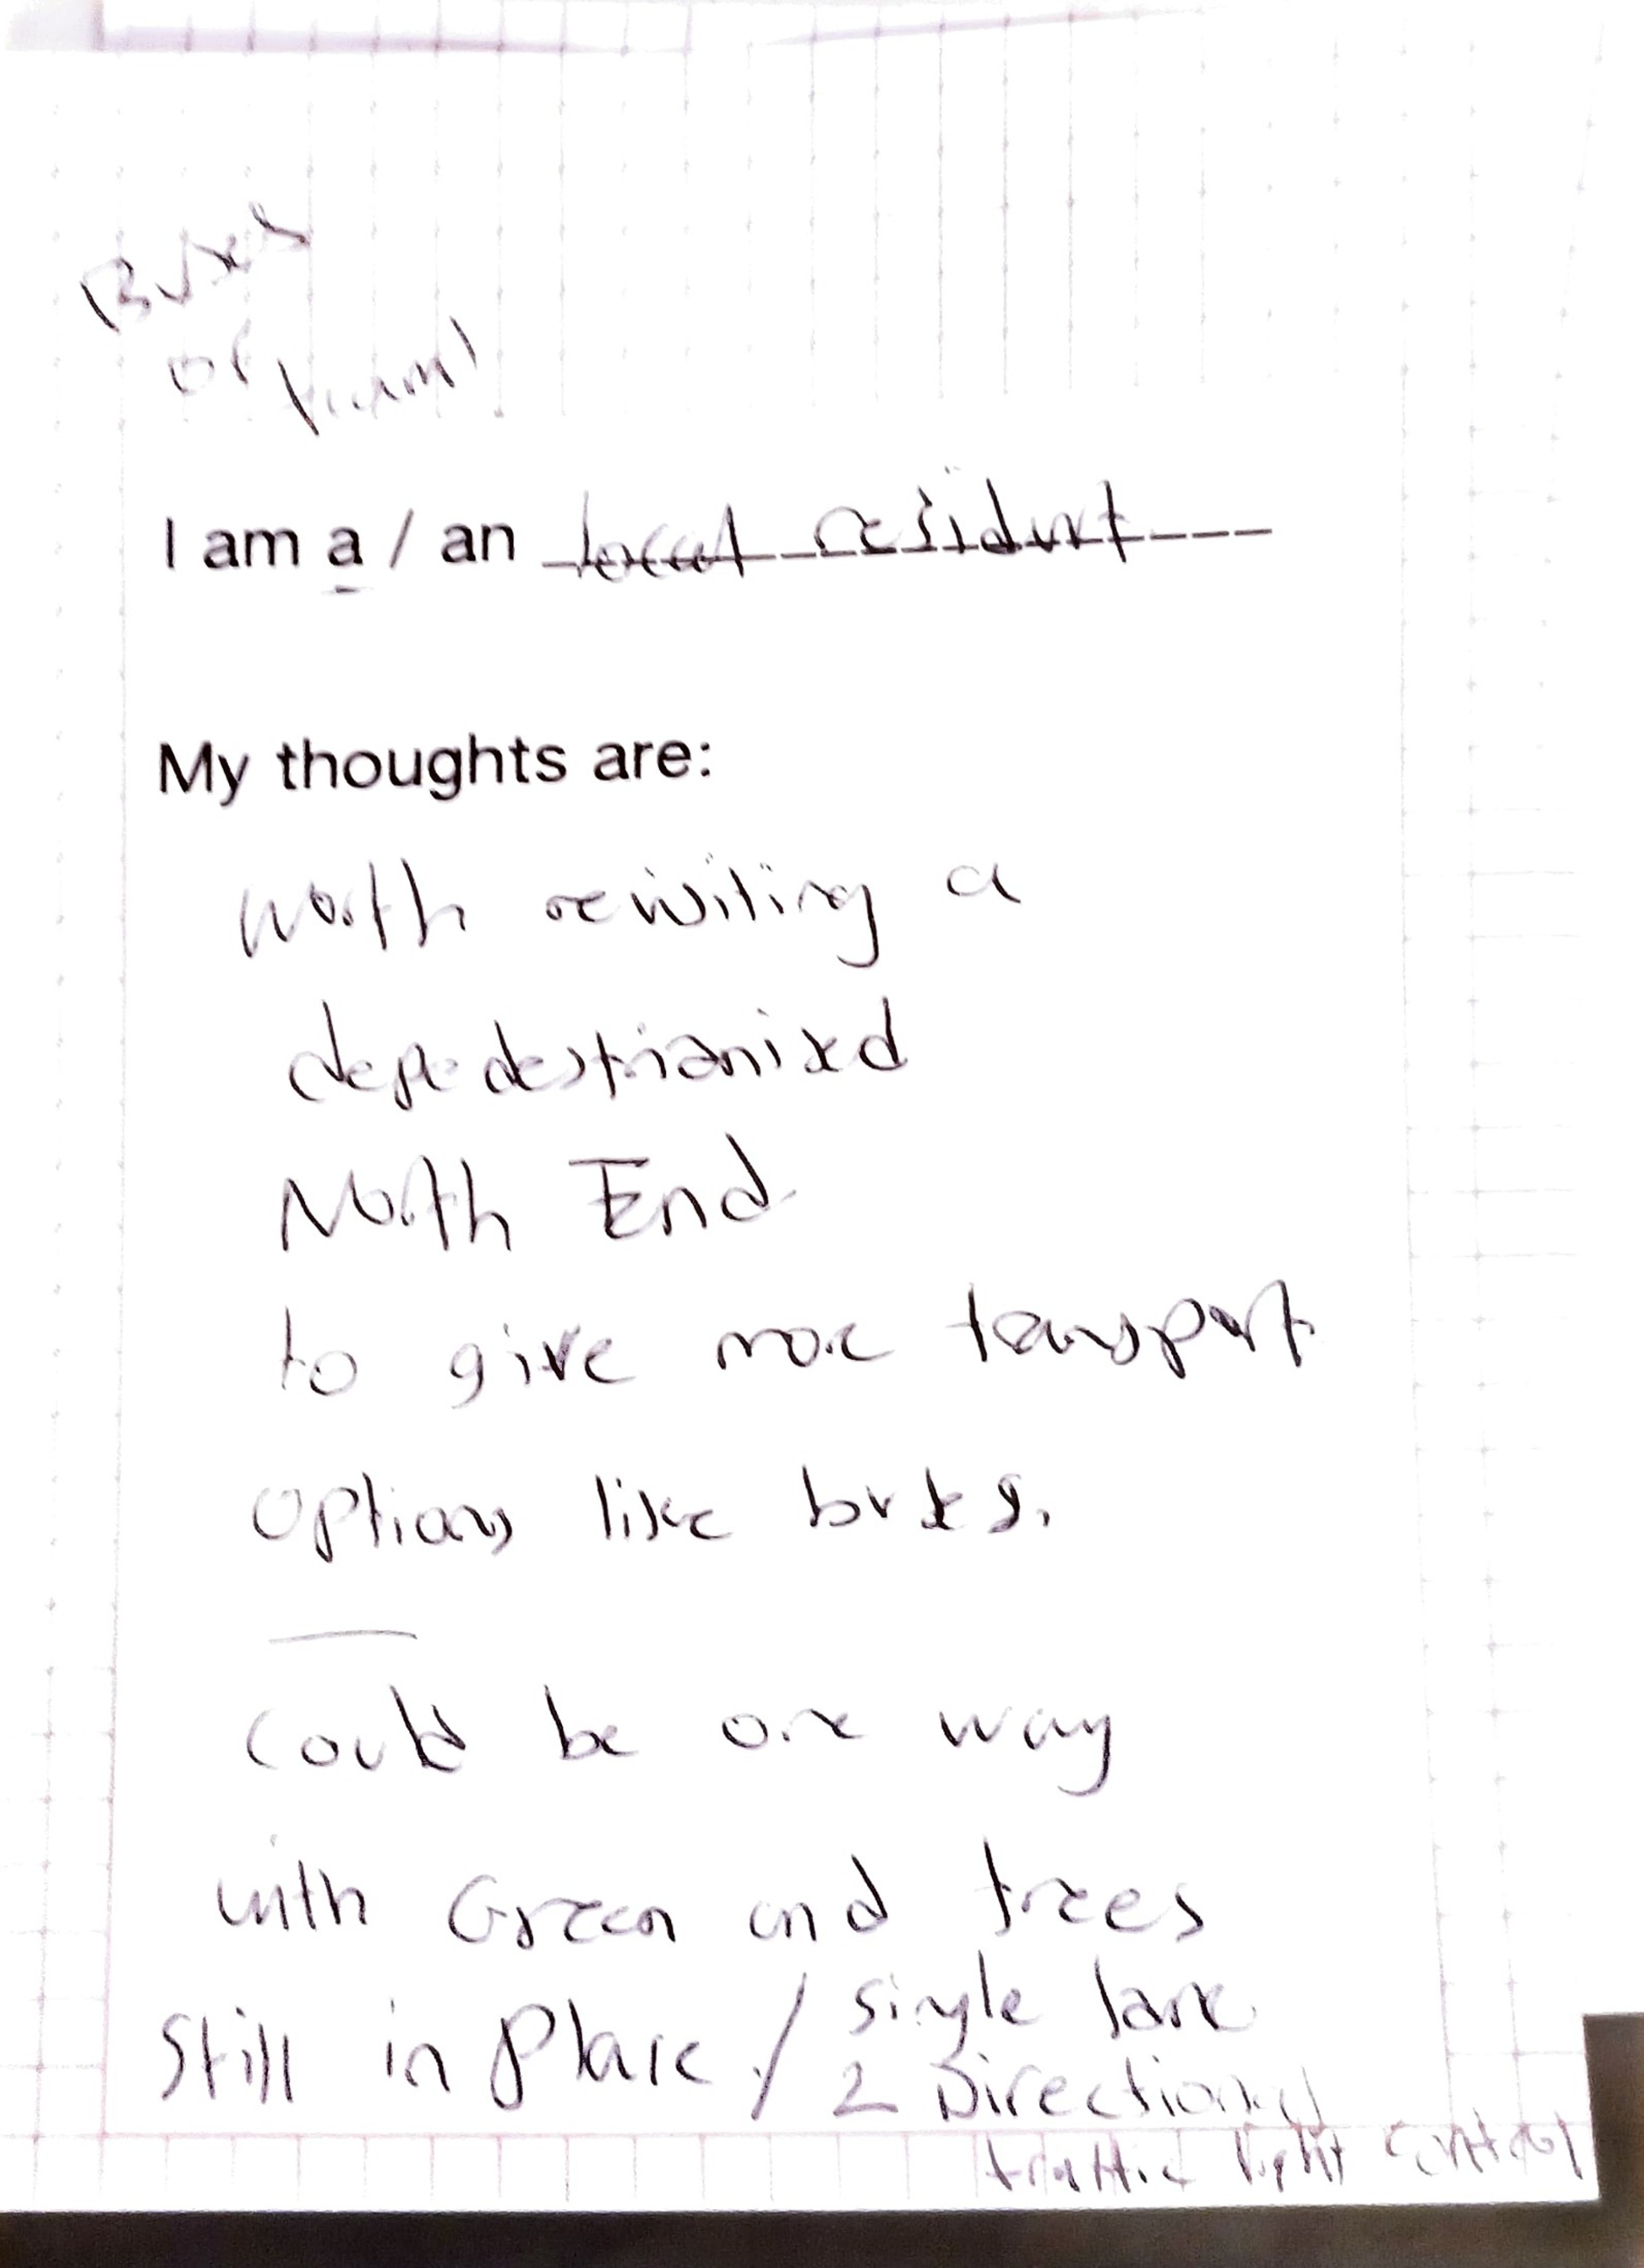 Buses
or tram!
I am a / an local resident
My thoughts are:
Worth revisiting a
depedestrianised
North End
to give more transport
options like buses.
Could be one way
with Green and trees
Still in Place / single lane
2 Directional
traffic light control